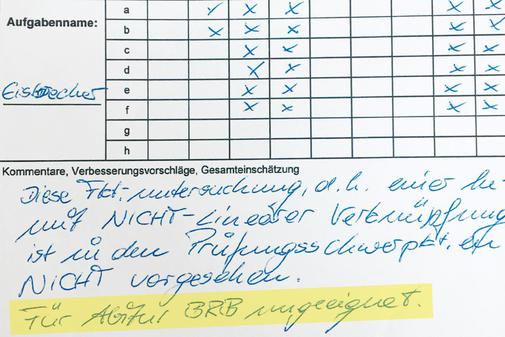 Aufgabenname:
Eisbecher
a
b
c
d
e
f
g
h
Kommentare, Verbesserungsvorschläge, Gesamteinschätzung
Diese Fkt.untersuchung, d.h. einer
mit NICHT-Linearer Verknüpfung
ist in den Prüfungsschwerpkt.en
NICHT vorgesehen.
Für Abitur BRB ungeeignet.